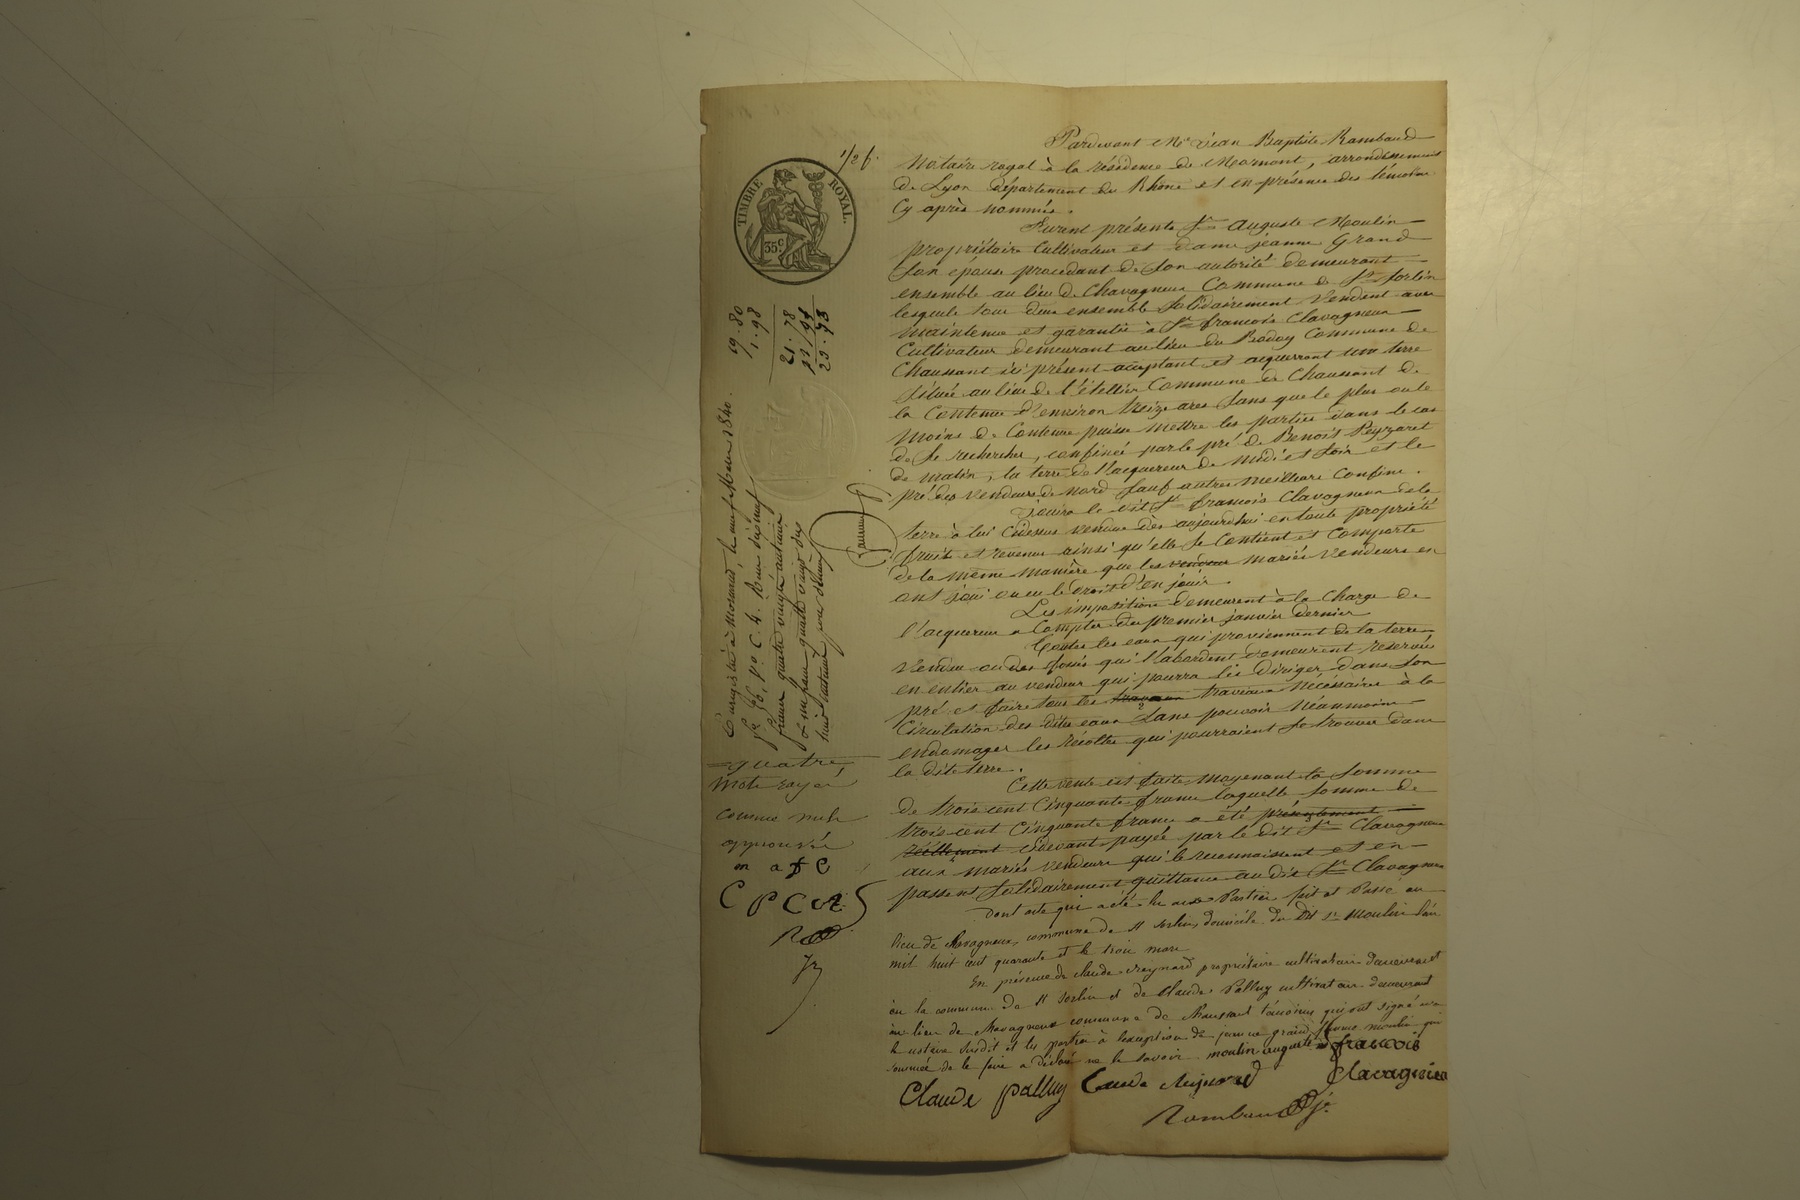 1/2 f.
TIMBRE ROYAL.
35 c
Pardevant Me Jean Baptiste Rambaud
Notaire royal à la résidence de Mornant, arrondissement
de Lyon département du Rhône et en présence des témoins
Cy après nommés.
Furent présents Sr Auguste Moulin
propriétaire Cultivateur et dame jeanne Grand
Son épouse procédant de Son autorité demeurant
ensemble au lieu de Chavagneux Commune de St Sorlin
lesquels tous deux ensemble Solidairement Vendent avec
maintenue et garantie à Sr françois Clavagneux
Cultivateur demeurant au lieu du Commune de
Chaussant ici présent acceptant et acquerrant une terre
Située au lieu de l'étellier Commune de Chaussant de
la Contenue d'environ treize ares Sans que le plus ou le
moins de Contenue puisse mettre les parties dans le cas
de Se rechercher, confinée par le pré de Benoit Peyzaret
de matin, la terre de l'acquereur de midi et Soir et le
pré des vendeurs de nord Sauf autres meilleurs Confins.
Jouira le dit Sr françois Clavagneux de la
terre à lui Cidessus vendue dès aujourdhui en toute propriété
fruits et revenus ainsi qu'elle Se Contient et Comporte
de la même manière que les vendeurs mariés Vendeurs en
ont joui ou eu le droit d'en jouir.
Les impositions demeurent à la Charge de
l'acquereur a Compter du premier janvier dernier
Toutes les eaux qui proviennent de la terre
Vendue ou des fossés qui l'abordent demeurent réservées
en entier au vendeur qui pourra les diriger dans Son
pré et faire tous les travaux travaux nécéssaires à la
Circulation des dites eaux Sans pouvoir néanmoins
endomager les récoltes qui pourraient Se trouver dans
la dite terre.
Cette vente est faite moyenant la Somme
de trois cent Cinquante francs laquelle Somme de
trois cent Cinquante francs a été présentement
réellement cidevant payée par le dit Sr Clavagneux
aux mariés vendeurs qui le reconnaissent et en
passent Solidairement quittance au dit Sr Clavagneux
dont acte qui a été lu aux Parties fait et Passé au
lieu de Chavagneux, commune de St Sorlin, domicile du dit sr Moulin l'an
mil huit cent quarante et le trois mars
En présence de Claude Reynard propriétaire cultivateur demeurant
en la commune de St Sorlin et de Claude Palluy cultivateur demeurant
au lieu de Chavagneux commune de Chaussant témoins qui ont signé avec
le notaire Susdit et les parties à l'exception de jeanne grand femme moulin qui
sommée de le faire a déclaré ne le savoir
moulin auguste françois
Clavagneux
Claude palluy Claude Reynard
Rambaud
19.80
1.98
21.78
23.73
Enregistré à Mornant, le neuf Mars 1840.
fo 96, Vo C. 4. Reçu dix neuf
francs quatre vingts centimes
& un franc quatre vingt dix
huit centimes pour décime
quatre
mots rayés
comme nuls
approuvés
m a
C P C